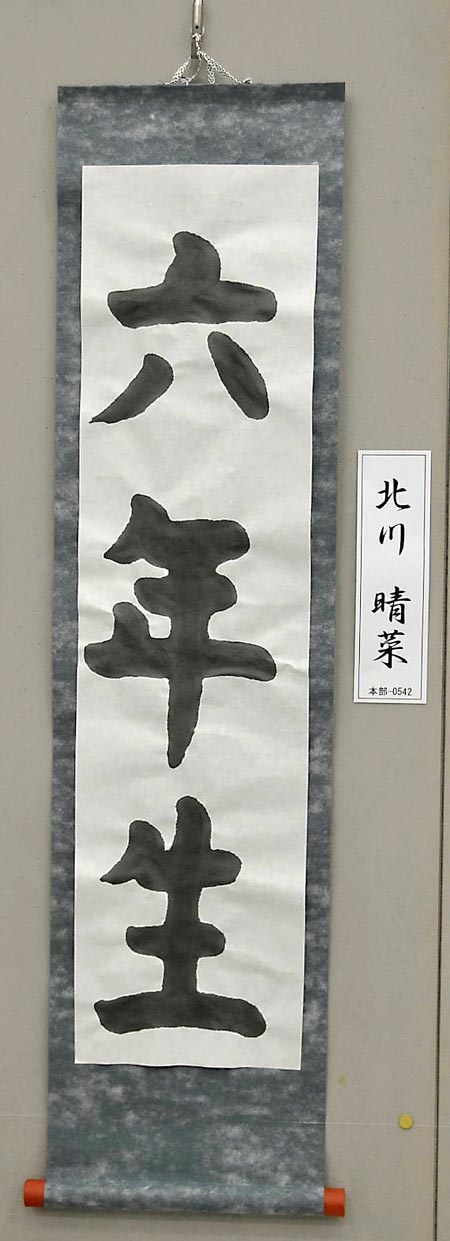 六年生
北川 晴菜
本部-0542